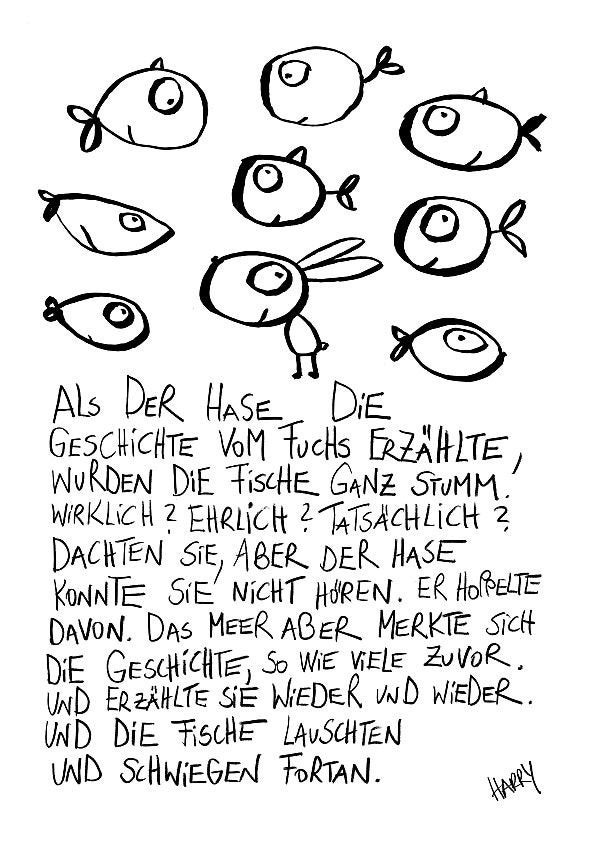 ALS DER HASE DIE
GESCHICHTE VOM FUCHS ERZÄHLTE,
WURDEN DIE FISCHE GANZ STUMM.
WIRKLICH? EHRLICH? TATSÄCHLICH?
DACHTEN SIE, ABER DER HASE
KONNTE SIE NICHT HÖREN. ER HOPPELTE
DAVON. DAS MEER ABER MERKTE SICH
DIE GESCHICHTE, SO WIE VIELE ZUVOR.
UND ERZÄHLTE SIE WIEDER UND WIEDER.
UND DIE FISCHE LAUSCHTEN
UND SCHWIEGEN FORTAN.
HARRY